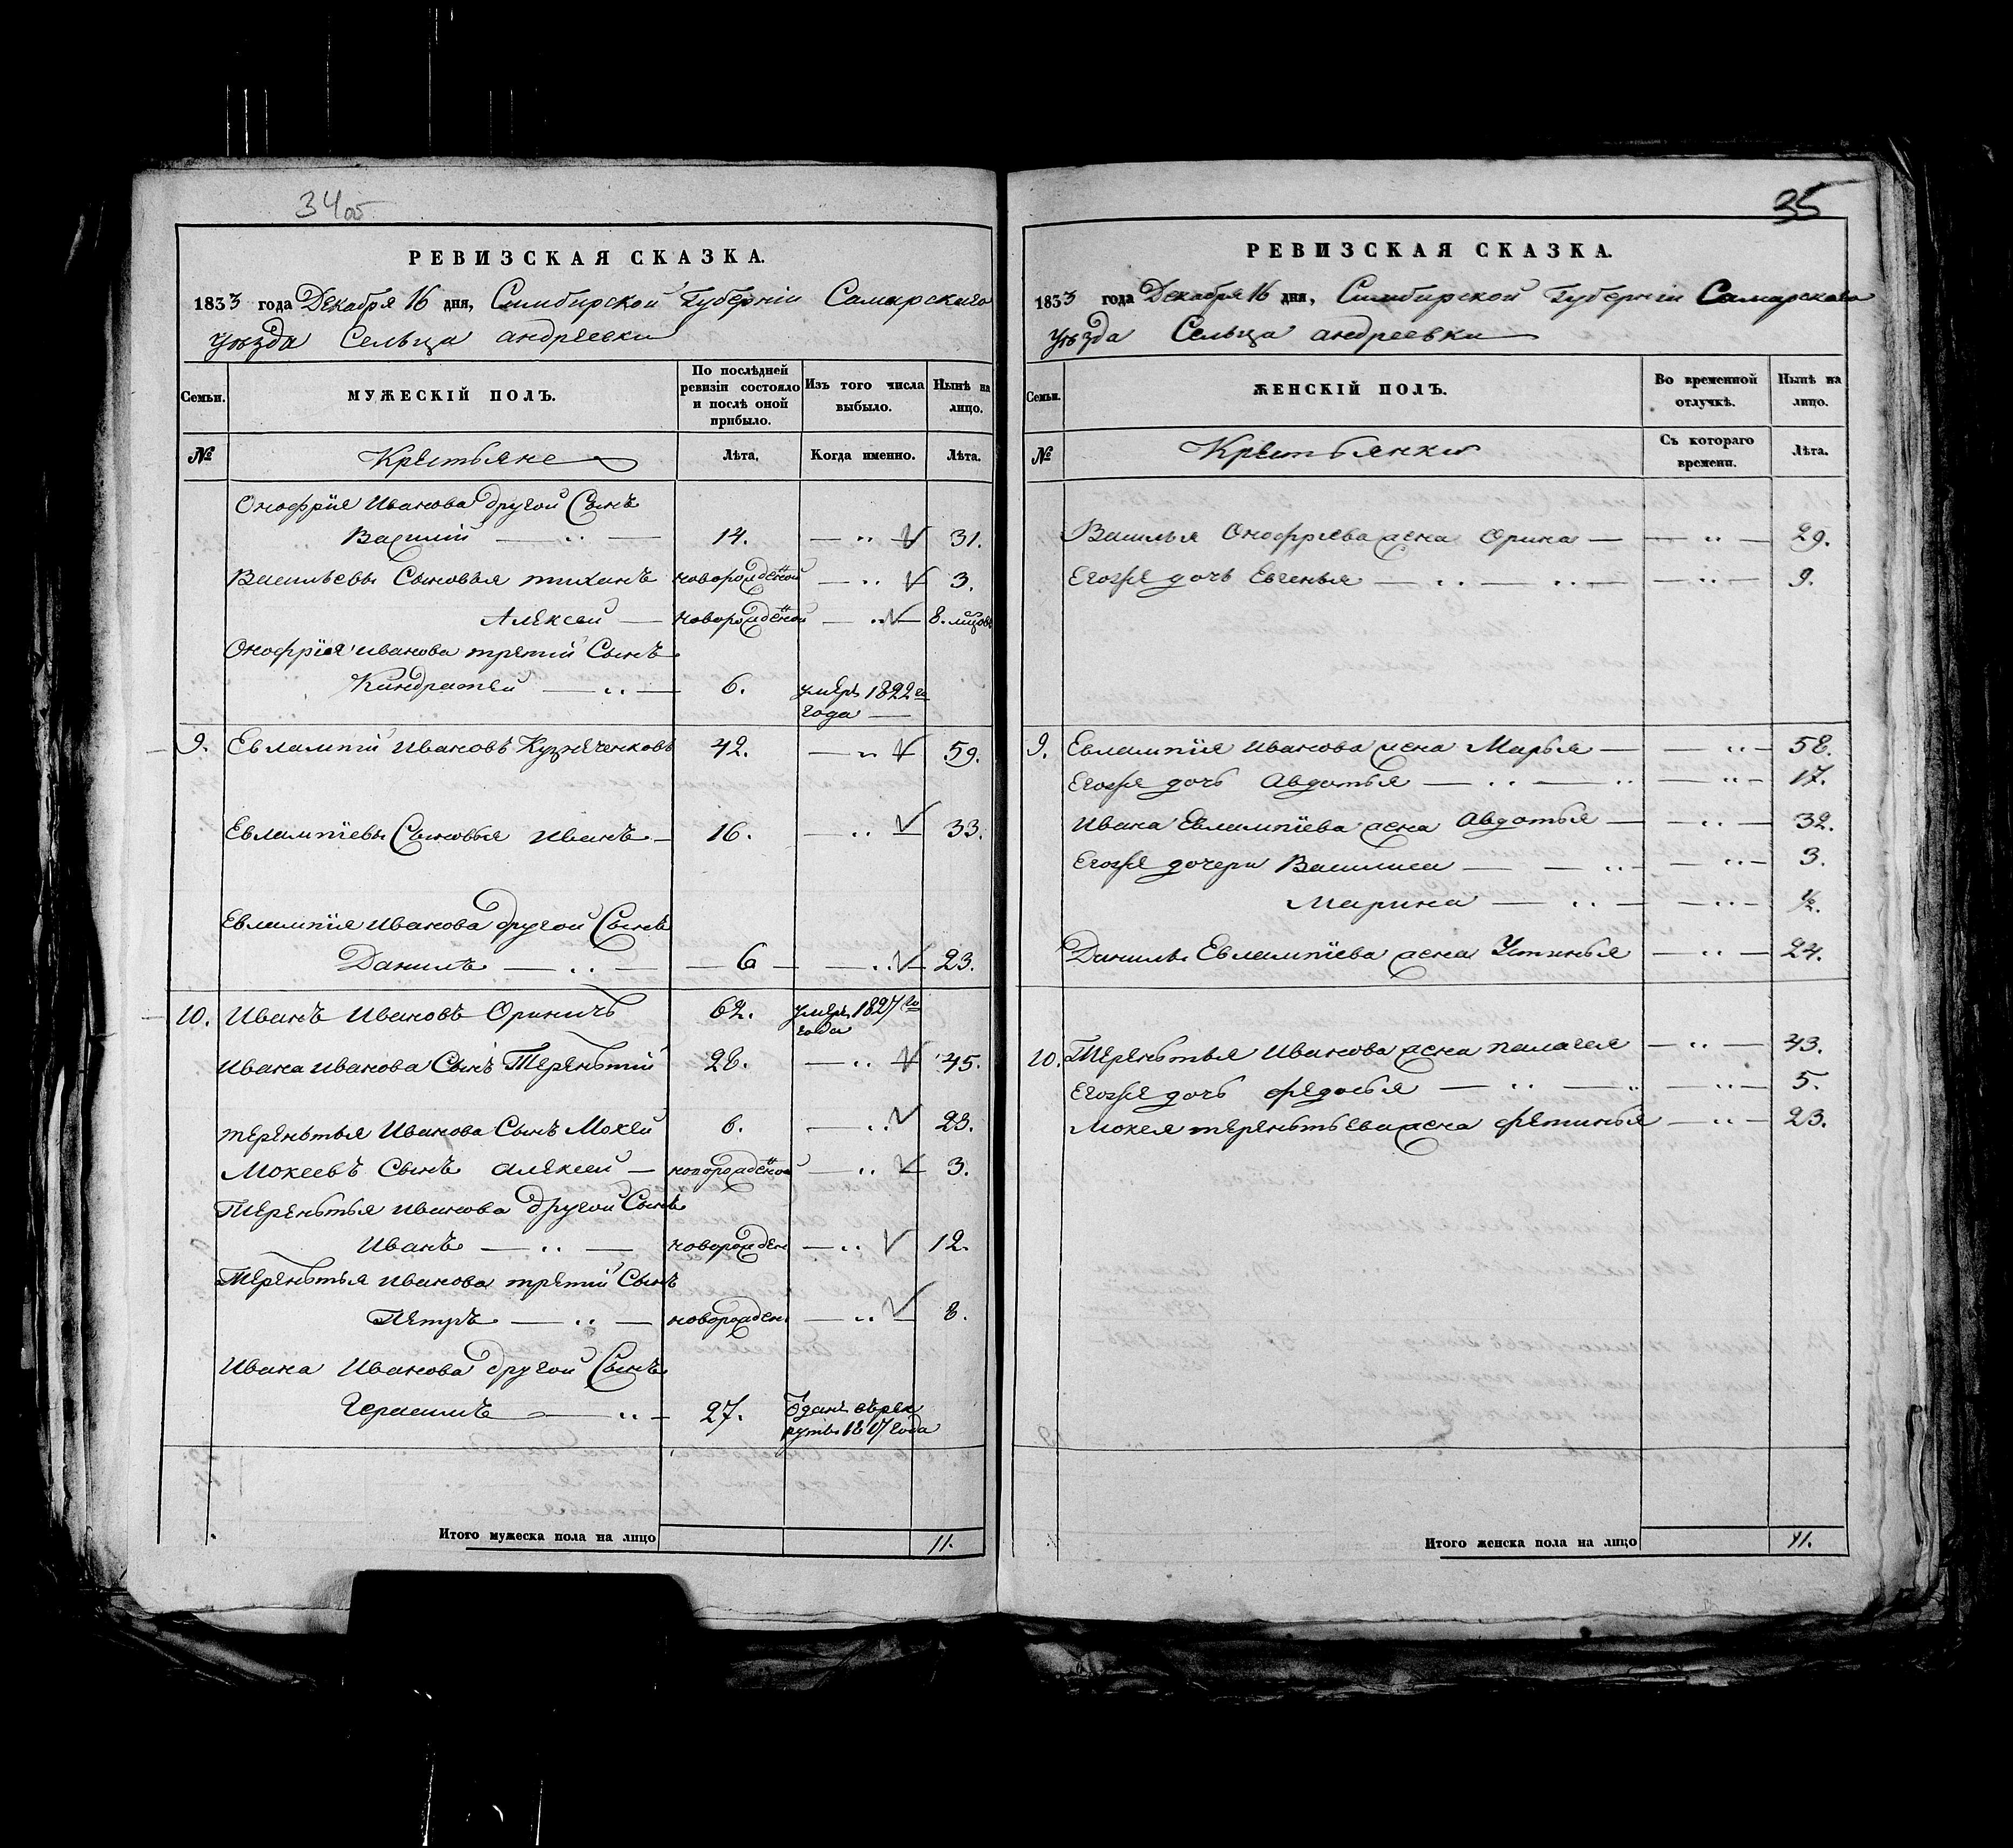 34об
РЕВИЗСКАЯ СКАЗКА.
1833 года Декабря 16 дня, Симбирской Губернiи Самарскаго
уѣзда Сельца андреевки
Семьи.
МУЖЕСКІЙ ПОЛЪ.
По послѣдней ревизіи состояло и послѣ оной прибыло.
Изъ того числа выбыло.
Нынѣ на лицо.
№
Крестьяне
Лѣта,
Когда именно.
Лѣта.
Онофрiя Иванова другой Сынъ
Василiй — 14. — 31.
Васильевы Сыновья тиханъ новорожденой — 3.
Алексей — новорожденой — 8. мцовъ
Онофрiя иванова третiй Сынъ
Киндратей — 6. умеръ 1822го
года —
9. Евлампiй Ивановъ Кузнеченковъ 42. — 59.
Евлампiевы Сыновья Иванъ — 16. — 33.
Евлампiя Иванова другой Сынъ
Данилъ — 6 — 23.
10. Иванъ Ивановъ Ориничь 62. умеръ 1827го
года
Ивана иванова Сынъ Терентiй 28. — 45.
терентья Иванова Сынъ Мокей 6. — 23.
Мокеевъ Сынъ алексей — новорожденой — 3.
Терентья иванова другой Сынъ
Иванъ — новорожден — 12.
Терентья иванова третiй Сынъ
Петръ — новорожден — 8.
Ивана Иванова другой Сынъ
Герасимъ — 27. Ѿданъ въ рек
руты 1817 года
Итого мужеска пола на лицо 11.
35
РЕВИЗСКАЯ СКАЗКА.
1833 года Декабря 16 дня, Симбирской Губернiи Самарскаго
уѣзда Сельца андреевки
Семьи.
ЖЕНСКІЙ ПОЛЪ.
Во временной отлучкѣ.
Нынѣ на лицо.
№
Крестьянки
Съ котораго времени.
Лѣта.
Василья Онофрiева жена Орина — 29.
Егожѣ дочь Евгенья — 9.
9. Евлампiя Иванова жена Марья — 58.
Егожѣ дочь Авдотья — 17.
Ивана Евлампiева жена Авдотья — 32.
Егожѣ дочери Василиса — 3.
Марина — ½.
Данилы Евлампiева жена Устинья — 24.
10. Терентья Иванова жена палагея — 43.
Егожѣ дочь федосья — 5.
Мокея терентьева жена фетинья — 23.
Итого женска пола на лицо 11.